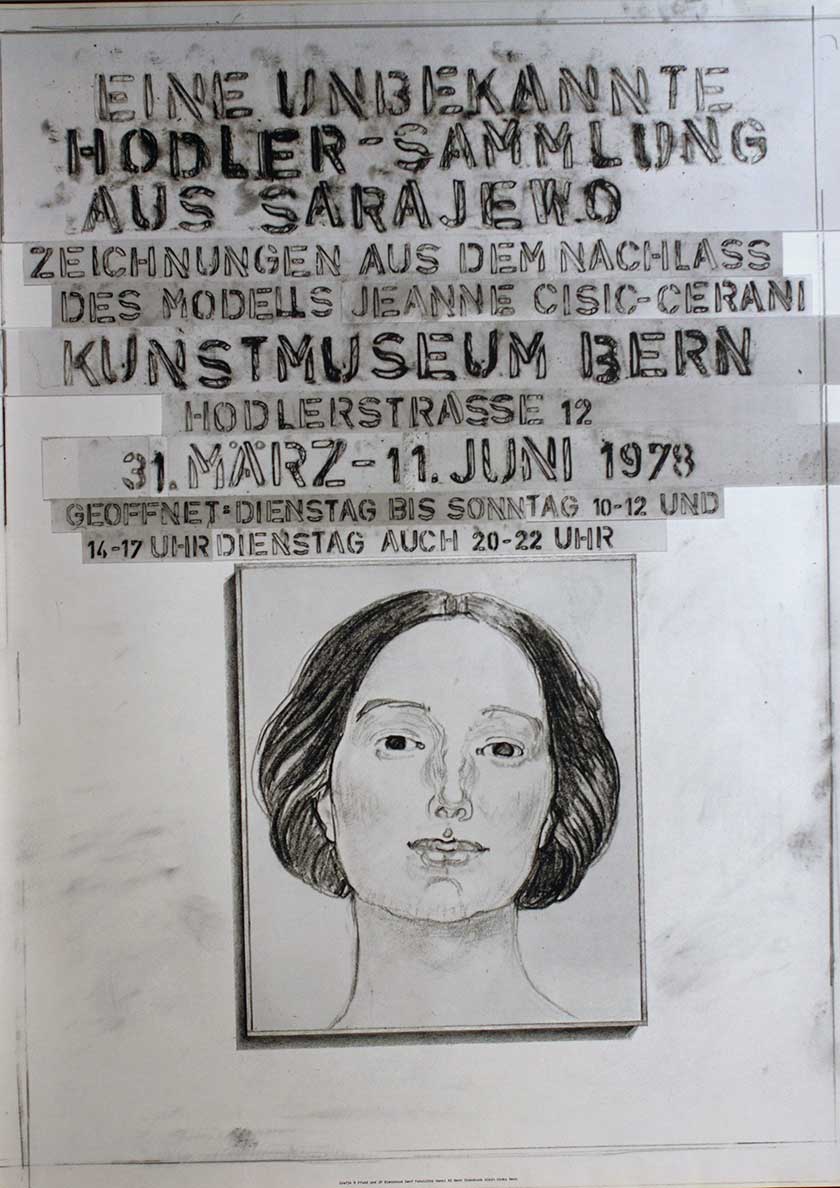 EINE UNBEKANNTE
HODLER-SAMMLUNG
AUS SARAJEWO
ZEICHNUNGEN AUS DEM NACHLASS
DES MODELLS JEANNE CISIC-CERANI
KUNSTMUSEUM BERN
HODLERSTRASSE 12
31. MÄRZ - 11. JUNI 1978
GEOFFNET: DIENSTAG BIS SONNTAG 10-12 UND
14-17 UHR DIENSTAG AUCH 20-22 UHR